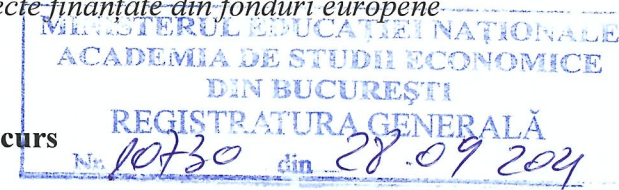 ecte finanțate din fonduri europene
MINISTERUL EDUCAȚIEI NAȚIONALE
ACADEMIA DE STUDII ECONOMICE
DIN BUCUREȘTI
curs REGISTRATURA GENERALĂ
Nr. 10730 din 28.09 2021